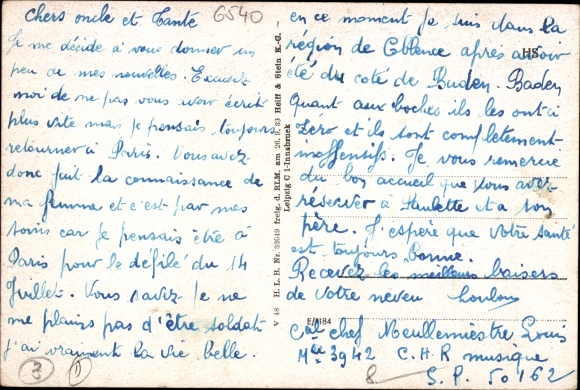 chers oncle et Tante
6540
Je me décide à vous donner un
peu de mes nouvelles. Excusez
moi de ne pas vous avoir écrit
plus vite mais je pensais toujours
retourner à Paris. Vous avez
donc fait la connaissance de
ma femme et c'est pas mes
torts car je pensais être à
Paris pour le défilé du 14
Juillet. Vous savez je ne
me plains pas d'être soldat
j'ai vraiment la vie belle.
3
1
V 48 H. L. B. Nr. 33649 freig. d. RLM. am 26. 9. 39 Heiff & Stein K.-G.
Leipzig C 1-Innsbruck
en ce moment je suis dans la
région de Coblence après avoir
HS
été du coté de Baden. Baden
Quant aux boches ils les ont à
Zéro et ils sont complètement
inoffensifs. Je vous remercie
du bon accueil que vous avez
réserver à Paulette et a son
père. J'espère que votre santé
est toujours bonne.
Recevez les meilleurs baisers
de votre neveu Loulou
Cal chef Meullemiestre Louis
Mle 3942 C.H.R musique
S.P. 50162